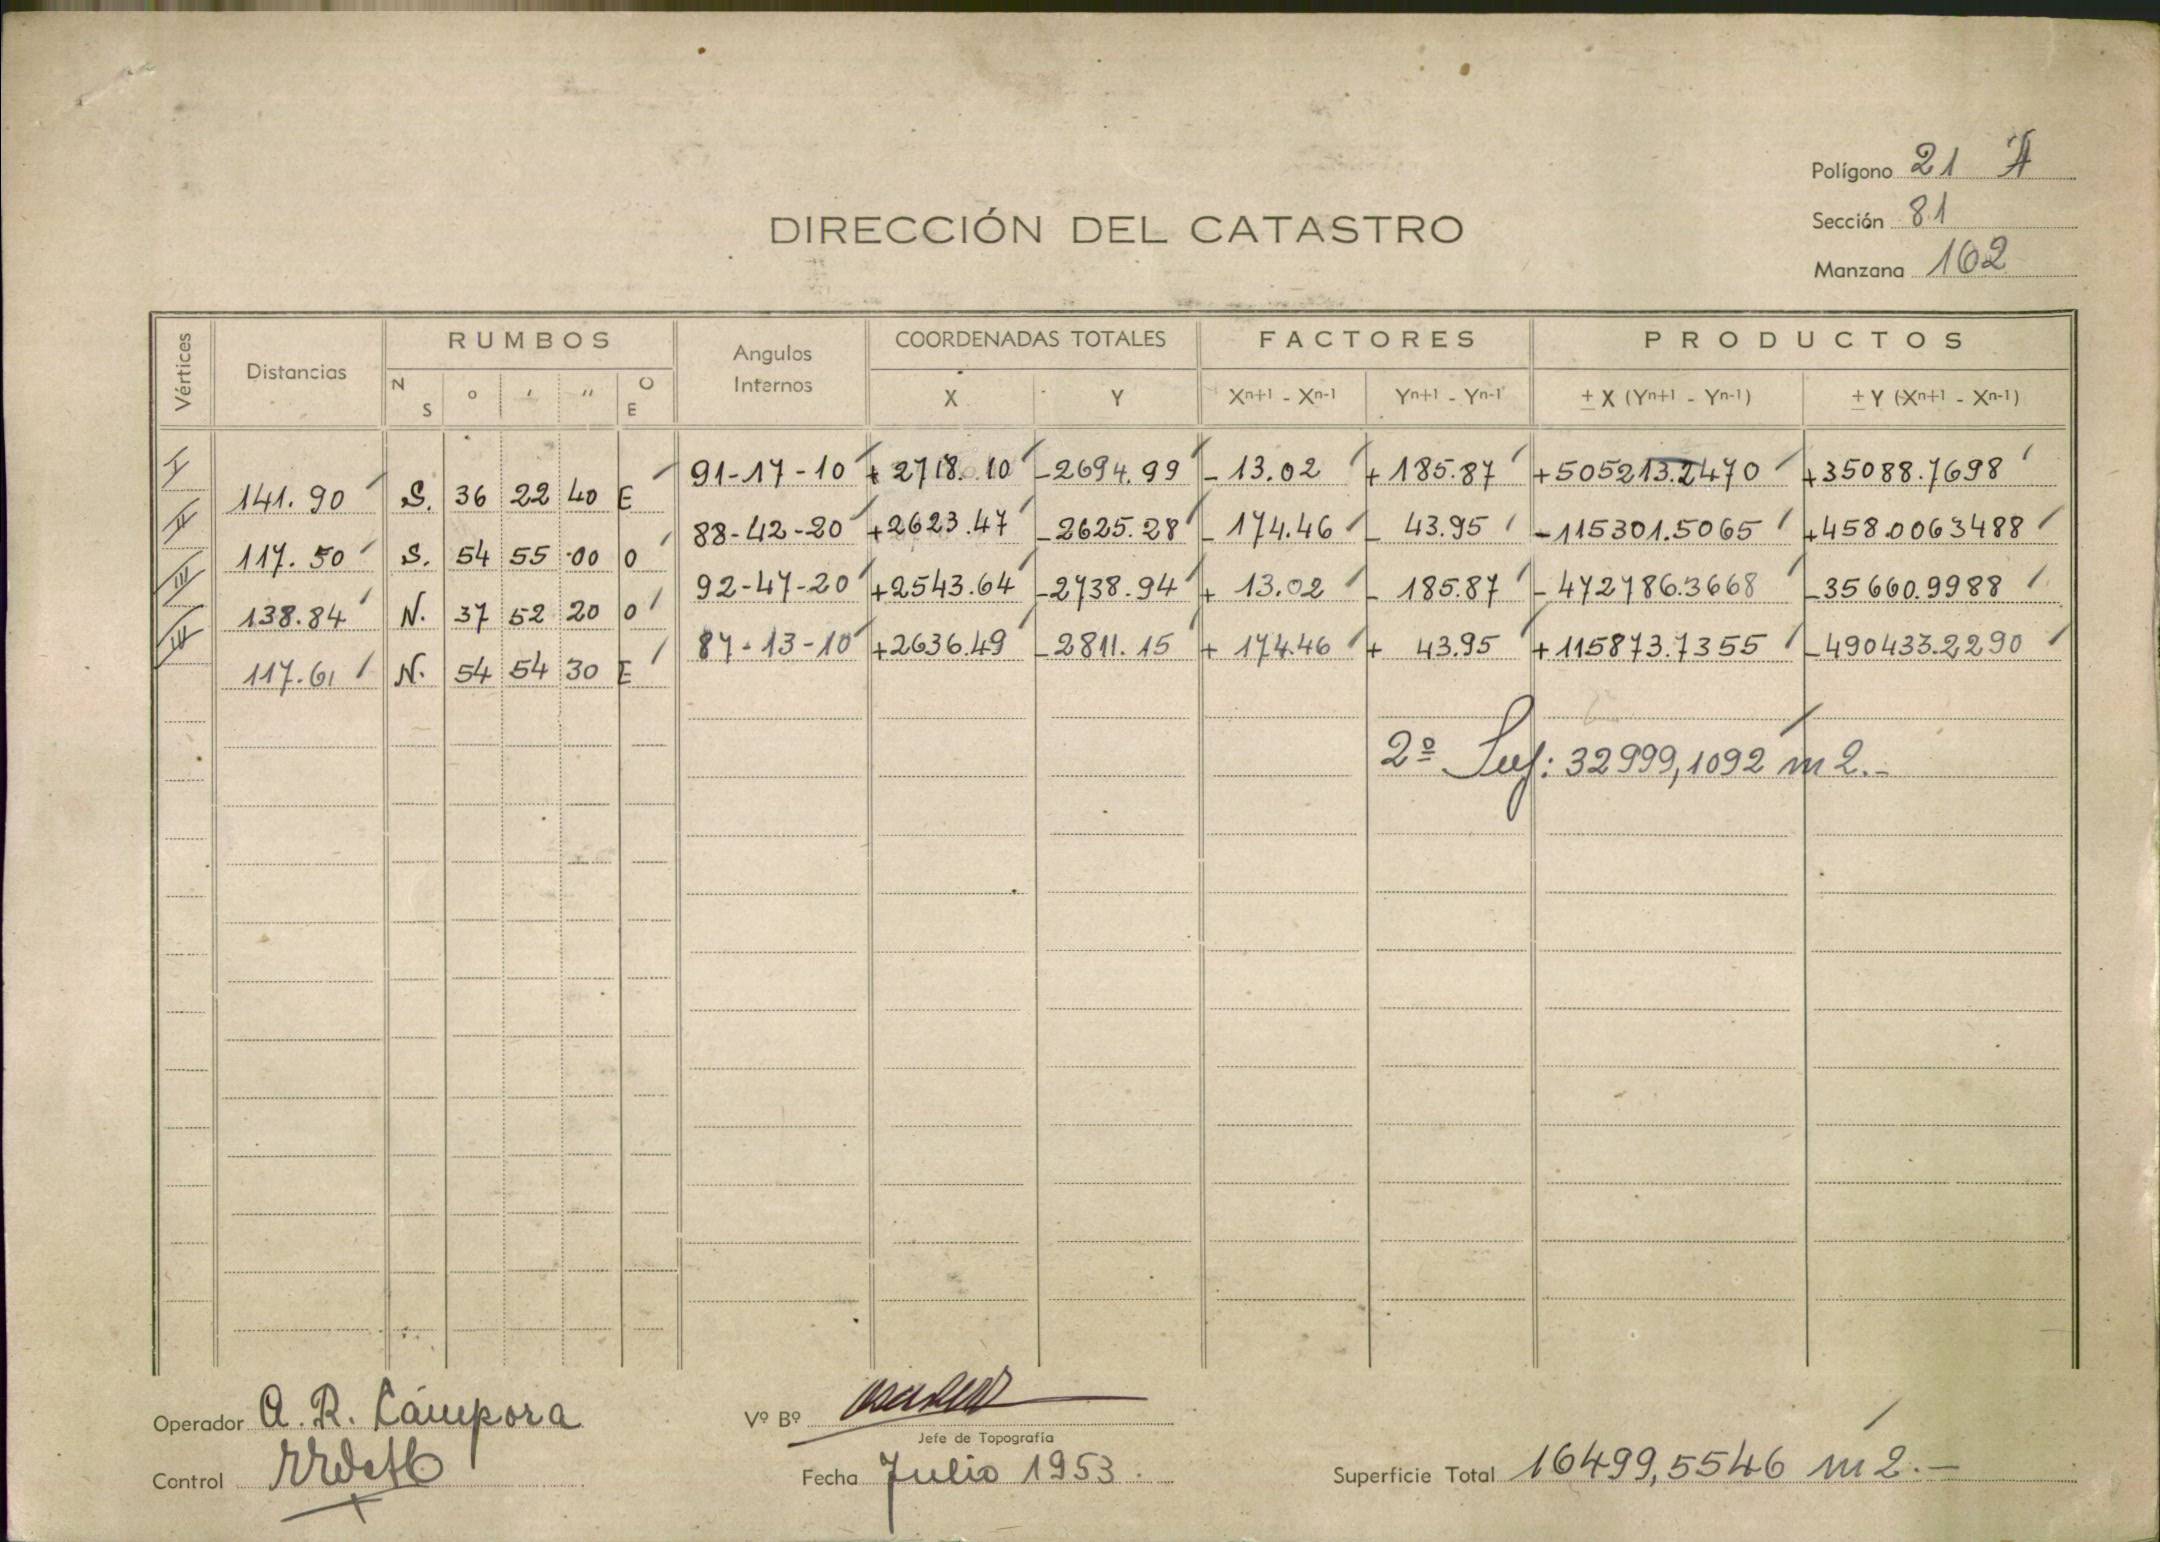 Polígono 21 A
Sección 81
Manzana 162
DIRECCIÓN DEL CATASTRO
Vértices Distancias RUMBOS Angulos Internos COORDENADAS TOTALES FACTORES PRODUCTOS
N S ° ′ ″ O E X Y Xⁿ⁺¹ - Xⁿ⁻¹ Yⁿ⁺¹ - Yⁿ⁻¹ ± X (Yⁿ⁺¹ - Yⁿ⁻¹) ± Y (Xⁿ⁺¹ - Xⁿ⁻¹)
I 91-17-10 + 2718.10 -2694.99 - 13.02 + 185.87 +505213.2470 +35088.7698
141.90 S. 36 22 40 E
II 88-42-20 +2623.47 -2625.28 - 174.46 - 43.95 -115301.5065 +458.0063488
117.50 S. 54 55 00 O
III 92-47-20 +2543.64 -2738.94 + 13.02 - 185.87 - 472786.3668 -35660.9988
138.84 N. 37 52 20 O
IV 87-13-10 +2636.49 -2811.15 + 174.46 + 43.95 +115873.7355 -490433.2290
117.61 N. 54 54 30 E
2º Sup: 32999,1092 m2.-
Operador A. R. Cámpora
Vº Bº
Jefe de Topografía
Control
Fecha Julio 1953.
Superficie Total 16499,5546 m2.-